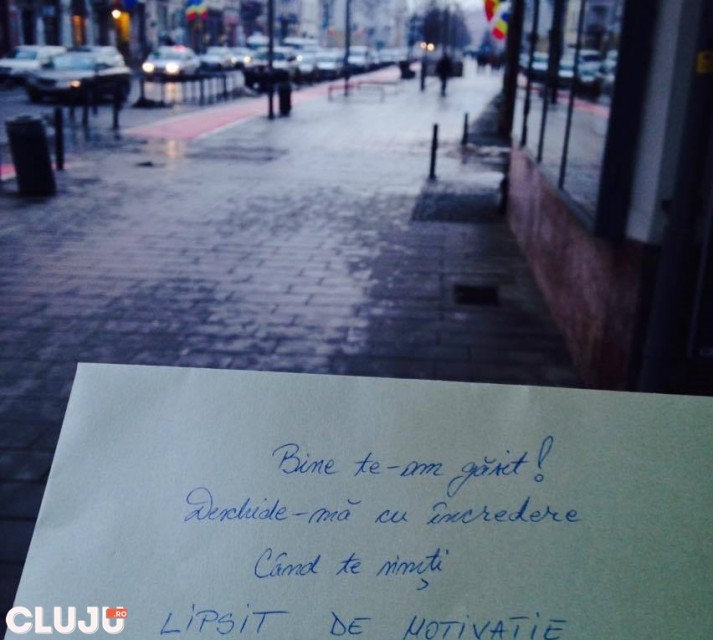 Bine te-am găsit!
Deschide-mă cu încredere
Când te simți
LIPSIT DE MOTIVAȚIE
CLUJU.RO